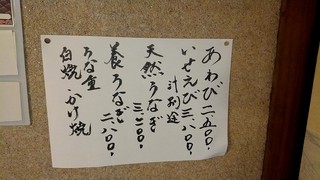 あわび二、五〇〇、
いせえび三、八〇〇、
計別途
天然うなぎ
三、二〇〇
養うなぎ
二、八〇〇、
うな重
白焼・かけ焼